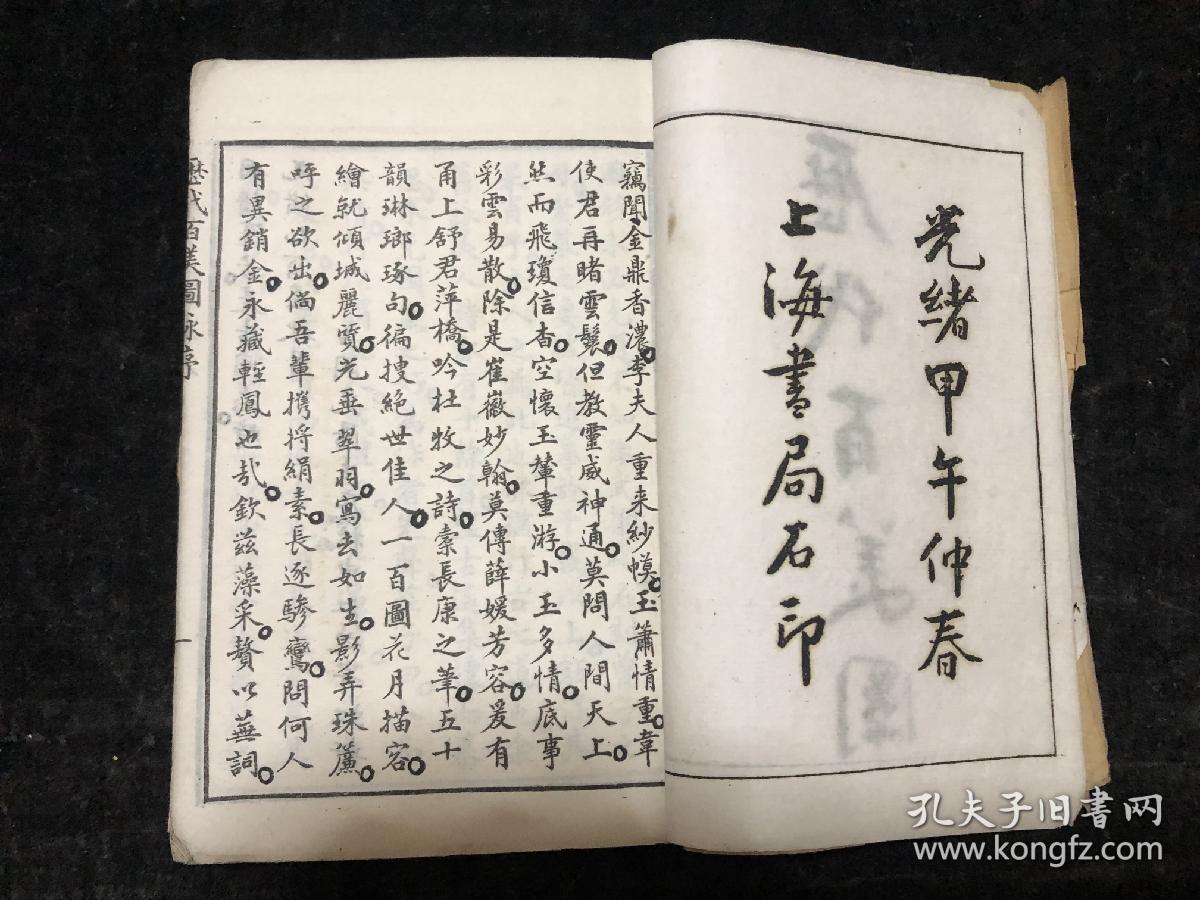 光緒甲午仲春
上海書局石印
竊聞金鼎香濃李夫人重来紗幙玉簫情重韋
使君再睹雲鬟但教靈威神通莫問人間天上
然而飛瓊信杳空懷玉輦重游小玉多情底事
彩雲易散除是崔徽妙翰莫傳薛媛芳容爰有
甬上舒君萍橋吟杜牧之詩橐長康之筆五十
韻琳瑯琢句徧搜絕世佳人一百圖花月描容
繪就傾城麗質光垂翠羽寫去如生影弄珠簾
呼之欲出倘吾輩携將絹素長逐驂鸞問何人
有異銷金永藏輕鳳也哉欽兹藻采贅以蕪詞
歷代百美圖詠序
一
歷代百美圖
孔夫子旧书网
www.kongfz.com